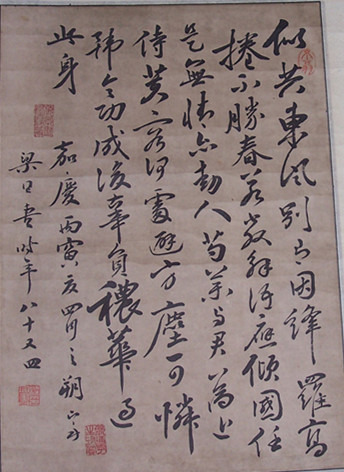 似共東風別有因絳羅高
捲不勝春若教解語應傾國任
是無情亦動人芍藥與君為近
侍芙蓉何處避芳塵可憐
韓令功成後辜負穠華過
此身
嘉慶丙寅四月之朔山舟
梁同書時年八十又四